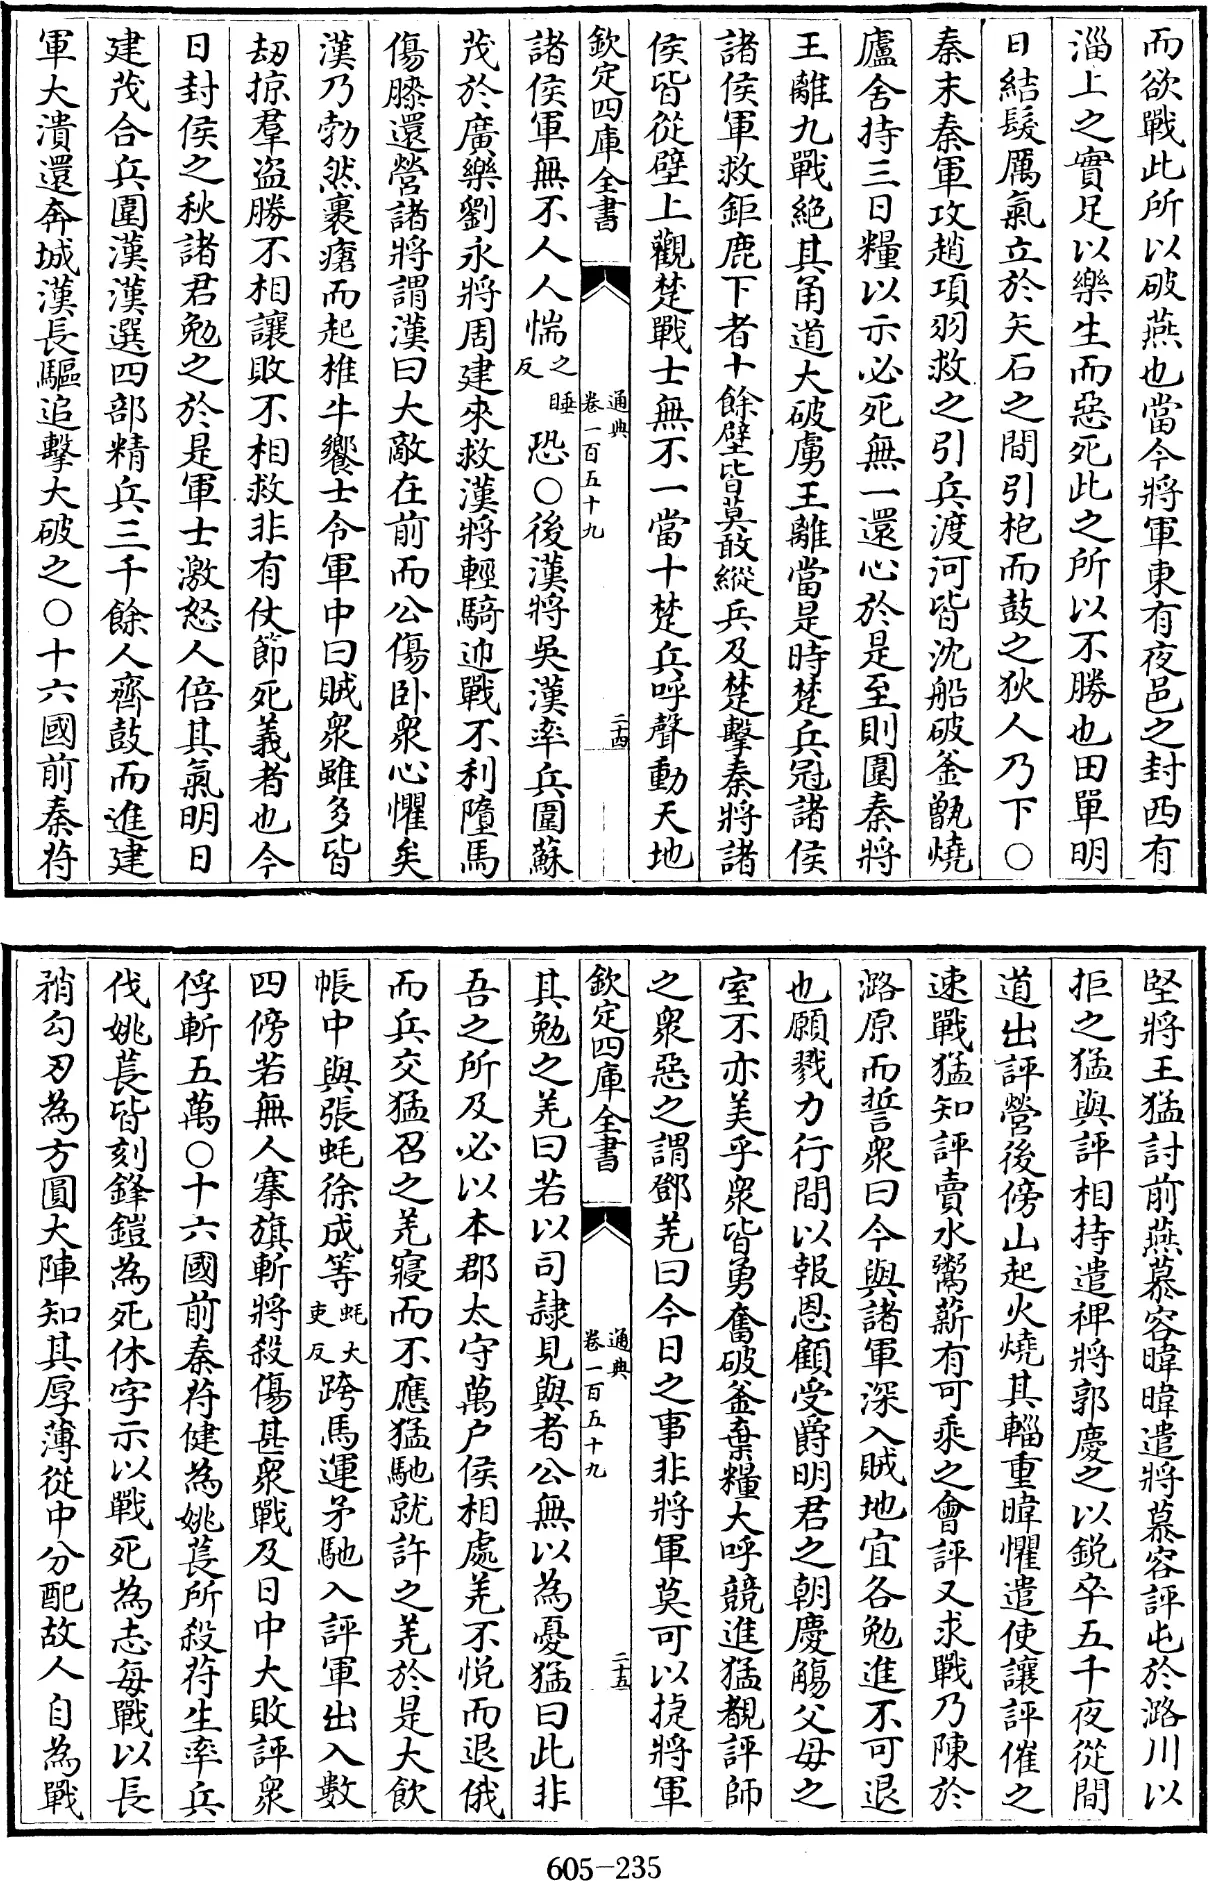 而欲戰此所以破燕也當今將軍東有夜邑之封西有
淄上之實足以樂生而惡死此之所以不勝也田單明
日結髮厲氣立於矢石之間引枹而鼓之狄人乃下○
秦末秦軍攻趙項羽救之引兵渡河皆沈船破釜甑燒
廬舍持三日糧以示必死無一還心於是至則圍秦將
王離九戰絶其甬道大破虜王離當是時楚兵冠諸侯
諸侯軍救鉅鹿下者十餘壁皆莫敢縱兵及楚擊秦將諸
侯皆從壁上觀楚戰士無不一當十楚兵呼聲動天地
欽定四庫全書
通典
卷一百五十九
二十四
諸侯軍無不人人惴之睡反恐○後漢將吳漢率兵圍蘇
茂於廣樂劉永將周建來救漢將輕騎迎戰不利墮馬
傷膝還營諸將謂漢曰大敵在前而公傷卧衆心懼矣
漢乃勃然裹瘡而起椎牛饗士令軍中曰賊衆雖多皆
劫掠羣盜勝不相讓敗不相救非有仗節死義者也今
日封侯之秋諸君勉之於是軍士激怒人倍其氣明日
建茂合兵圍漢漢選四部精兵三千餘人齊鼓而進建
軍大潰還奔城漢長驅追擊大破之○十六國前秦苻
堅將王猛討前燕慕容暐暐遣將慕容評屯於潞川以
拒之猛與評相持遣裨將郭慶之以鋭卒五千夜從間
道出評營後傍山起火燒其輜重暐懼遣使讓評催之
速戰猛知評賣水鬻薪有可乘之會評又求戰乃陳於
潞原而誓衆曰今與諸軍深入賊地宜各勉進不可退
也願戮力行間以報恩顧受爵明君之朝慶觴父母之
室不亦美乎衆皆勇奮破釜棄糧大呼競進猛覩評師
之衆惡之謂鄧羌曰今日之事非將軍莫可以捷將軍
欽定四庫全書
通典
卷一百五十九
二十五
其勉之羌曰若以司隷見與者公無以為憂猛曰此非
吾之所及必以本郡太守萬户侯相處羌不悦而退俄
而兵交猛召之羌寢而不應猛馳就許之羌於是大飲
帳中與張蚝徐成等蚝大吏反跨馬運矛馳入評軍出入數
四傍若無人搴旗斬將殺傷甚衆戰及日中大敗評衆
俘斬五萬○十六國前秦苻健為姚萇所殺苻生率兵
伐姚萇皆刻鋒鎧為死休字示以戰死為志每戰以長
矟勾刃為方圓大陣知其厚薄從中分配故人自為戰
605-235